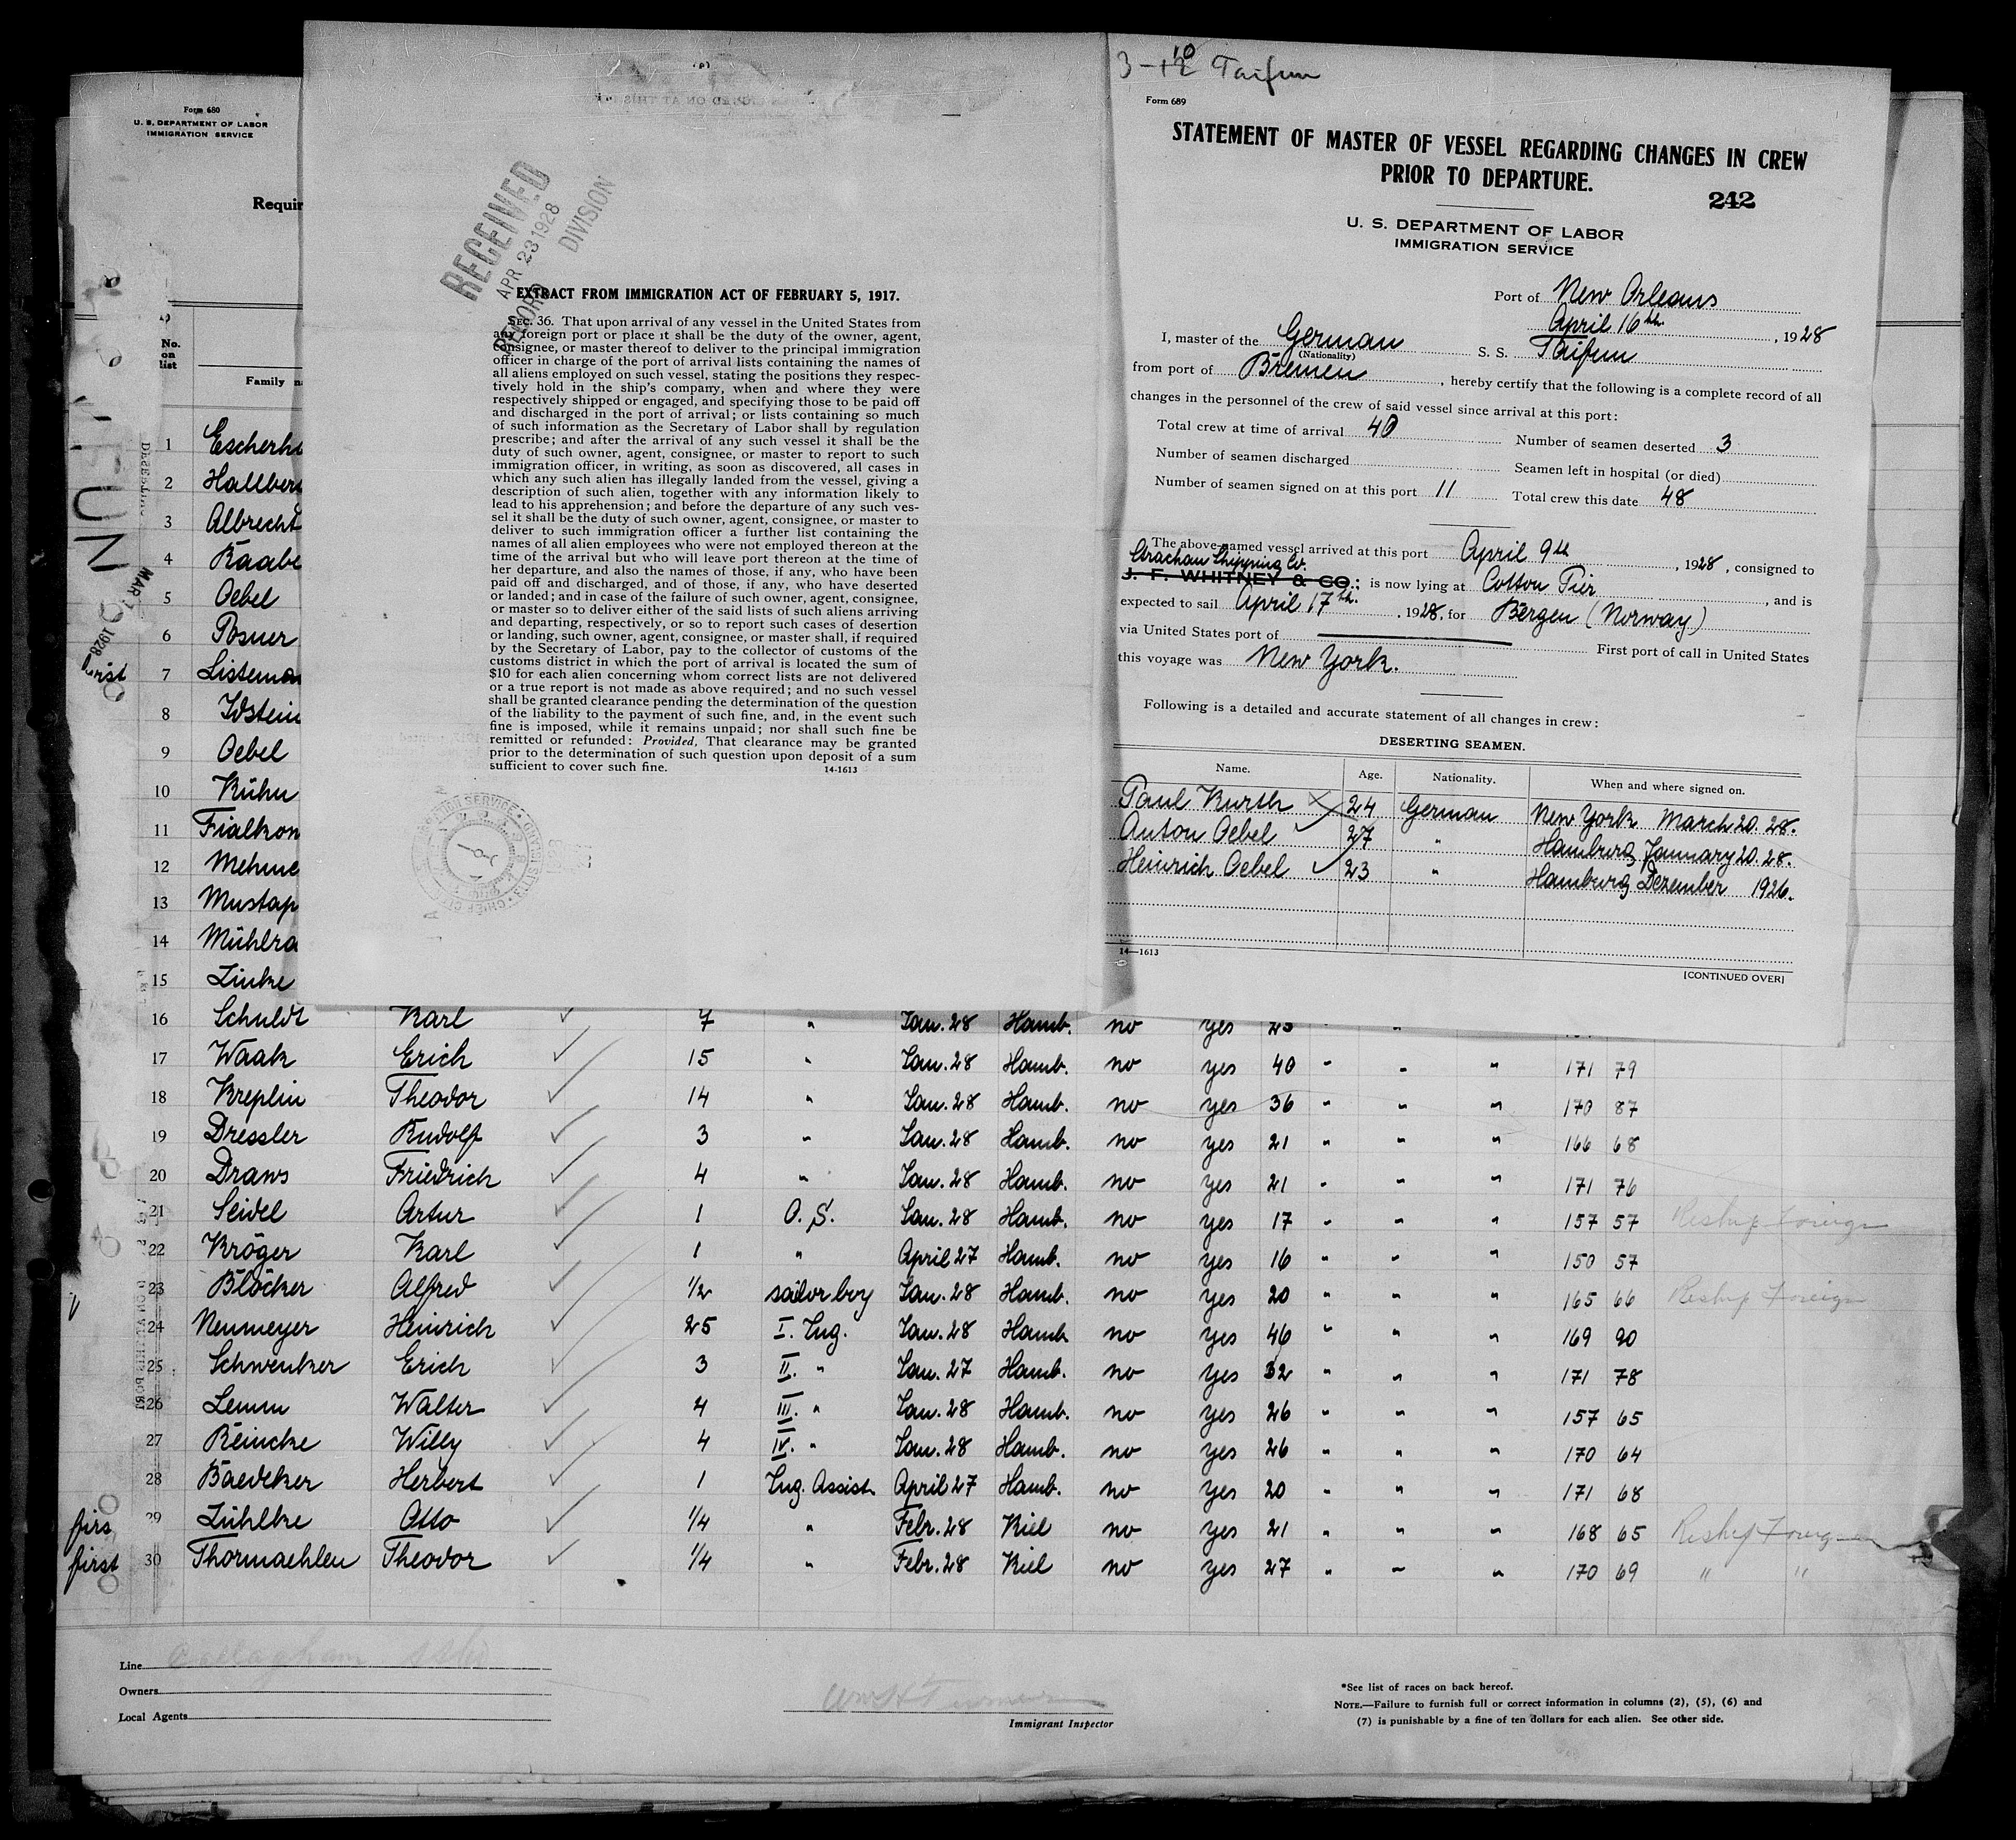 3-12 10 Taifun
Form 689
STATEMENT OF MASTER OF VESSEL REGARDING CHANGES IN CREW
PRIOR TO DEPARTURE.
242
U. S. DEPARTMENT OF LABOR
IMMIGRATION SERVICE
Port of New Orleans
April 16th, 1928
I, master of the German S. S. Taifun
(Nationality)
from port of Bremen, hereby certify that the following is a complete record of all
changes in the personnel of the crew of said vessel since arrival at this port:
Total crew at time of arrival 40 Number of seamen deserted 3
Number of seamen discharged Seamen left in hospital (or died)
Number of seamen signed on at this port 11 Total crew this date 48
The above-named vessel arrived at this port April 9th, 1928, consigned to
Strachan Shipping Co.
J. F. WHITNEY & CO.; is now lying at Cotton Pier, and is
expected to sail April 17th, 1928, for Bergen (Norway)
via United States port of First port of call in United States
this voyage was New York.
Following is a detailed and accurate statement of all changes in crew:
DESERTING SEAMEN.
Name. Age. Nationality. When and where signed on.
Paul Kurth 24 German New York March 20. 28.
Anton Oebel 27 " Hamburg January 20. 28.
Heinrich Oebel 23 " Hamburg Dezember 1926.
14—1613
[CONTINUED OVER]
RECEIVED
APR 23 1928
RECORD DIVISION
EXTRACT FROM IMMIGRATION ACT OF FEBRUARY 5, 1917.
SEC. 36. That upon arrival of any vessel in the United States from
any foreign port or place it shall be the duty of the owner, agent,
consignee, or master thereof to deliver to the principal immigration
officer in charge of the port of arrival lists containing the names of
all aliens employed on such vessel, stating the positions they respec-
tively hold in the ship's company, when and where they were
respectively shipped or engaged, and specifying those to be paid off
and discharged in the port of arrival; or lists containing so much
of such information as the Secretary of Labor shall by regulation
prescribe; and after the arrival of any such vessel it shall be the
duty of such owner, agent, consignee, or master to report to such
immigration officer, in writing, as soon as discovered, all cases in
which any such alien has illegally landed from the vessel, giving a
description of such alien, together with any information likely to
lead to his apprehension; and before the departure of any such ves-
sel it shall be the duty of such owner, agent, consignee, or master to
deliver to such immigration officer a further list containing the
names of all alien employees who were not employed thereon at the
time of the arrival but who will leave port thereon at the time of
her departure, and also the names of those, if any, who have been
paid off and discharged, and of those, if any, who have deserted
or landed; and in case of the failure of such owner, agent, consignee,
or master so to deliver either of the said lists of such aliens arriving
and departing, respectively, or so to report such cases of desertion
or landing, such owner, agent, consignee, or master shall, if required
by the Secretary of Labor, pay to the collector of customs of the
customs district in which the port of arrival is located the sum of
$10 for each alien concerning whom correct lists are not delivered
or a true report is not made as above required; and no such vessel
shall be granted clearance pending the determination of the question
of the liability to the payment of such fine, and, in the event such
fine is imposed, while it remains unpaid; nor shall such fine be
remitted or refunded: Provided, That clearance may be granted
prior to the determination of such question upon deposit of a sum
sufficient to cover such fine. 14-1613
Form 680
U. S. DEPARTMENT OF LABOR
IMMIGRATION SERVICE
Requir
No. on list
Family n
1 Escherh
2 Hallber
3 Albrecht
4 Raabe
5 Oebel
6 Posner
first 7 Listeman
8 Idstein
9 Oebel
10 Kühn
11 Fialkow
12 Mehme
13 Mustap
14 Mühlra
15 Linke
16 Schuldt Karl 7 " Jan. 28 Hamb. no yes 25 " "
17 Waak Erich 15 " Jan. 28 Hamb. no yes 40 " " " 171 79
18 Kreplin Theodor 14 " Jan. 28 Hamb. no yes 36 " " " 170 87
19 Dressler Rudolf 3 " Jan. 28 Hamb. no yes 21 " " " 166 68
20 Draws Friedrich 4 " Jan. 28 Hamb. no yes 21 " " " 171 76
21 Seidel Artur 1 O. S. Jan. 28 Hamb. no yes 17 " " " 157 57 Reship Foreign
22 Kröger Karl 1 " April 27 Hamb. no yes 16 " " " 150 57
23 Blöcker Alfred 1/2 sailor boy Jan. 28 Hamb. no yes 20 " " " 165 66 Reship Foreign
24 Neumeyer Heinrich 25 I. Ing. Jan. 28 Hamb no yes 46 " " " 169 90
25 Schwenker Erich 3 II. " Jan. 27 Hamb. no yes 32 " " " 171 78
26 Lemm Walter 4 III. " Jan. 28 Hamb. no yes 26 " " " 157 65
27 Reincke Willy 4 IV. " Jan. 28 Hamb. no yes 26 " " " 170 64
28 Baedeker Herbert 1 Ing. Assist. April 27 Hamb. no yes 20 " " " 171 68
firs 29 Lühlke Otto 1/4 " Febr. 28 Kiel no yes 21 " " " 168 65 Reship Foreign
first 30 Thormaehlen Theodor 1/4 " Febr. 28 Kiel no yes 27 " " " 170 69 " "
Line
Owners
Local Agents
Immigrant Inspector
*See list of races on back hereof.
NOTE.—Failure to furnish full or correct information in columns (2), (5), (6) and
(7) is punishable by a fine of ten dollars for each alien. See other side.